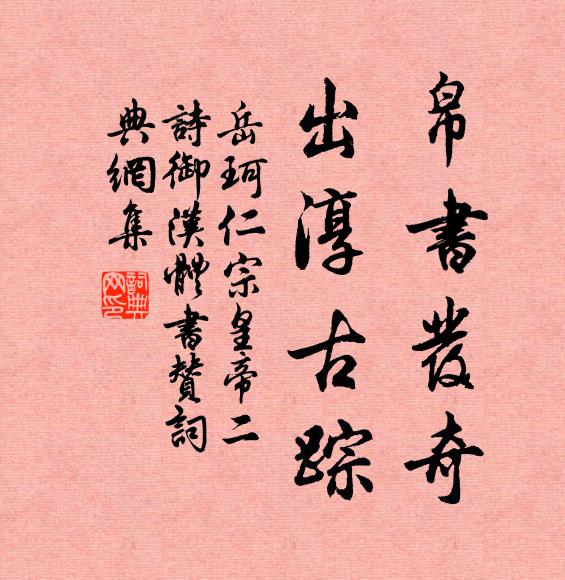 帛書發奇
出淳古踪
岳珂仁宗皇帝二
詩御漢體書贊詞
典網集
詞典網印